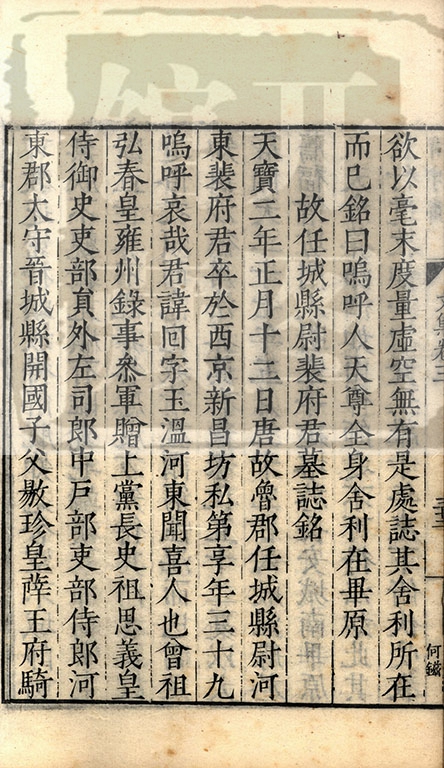 欲以毫末度量虛空無有是處誌其舍利所在
而已銘曰嗚呼人天尊全身舍利在畢原
故任城縣尉裴府君墓誌銘
天寶二年正月十二日唐故魯郡任城縣尉河
東裴府君卒於西京新昌坊私第享年三十九
嗚呼哀哉君諱回字玉溫河東聞喜人也曾祖
弘春皇雍州錄事叅軍贈上黨長史祖思義皇
侍御史吏部員外左司郎中戶部吏部侍郎河
東郡太守晉城縣開國子父敭珍皇薛王府騎
何鑰